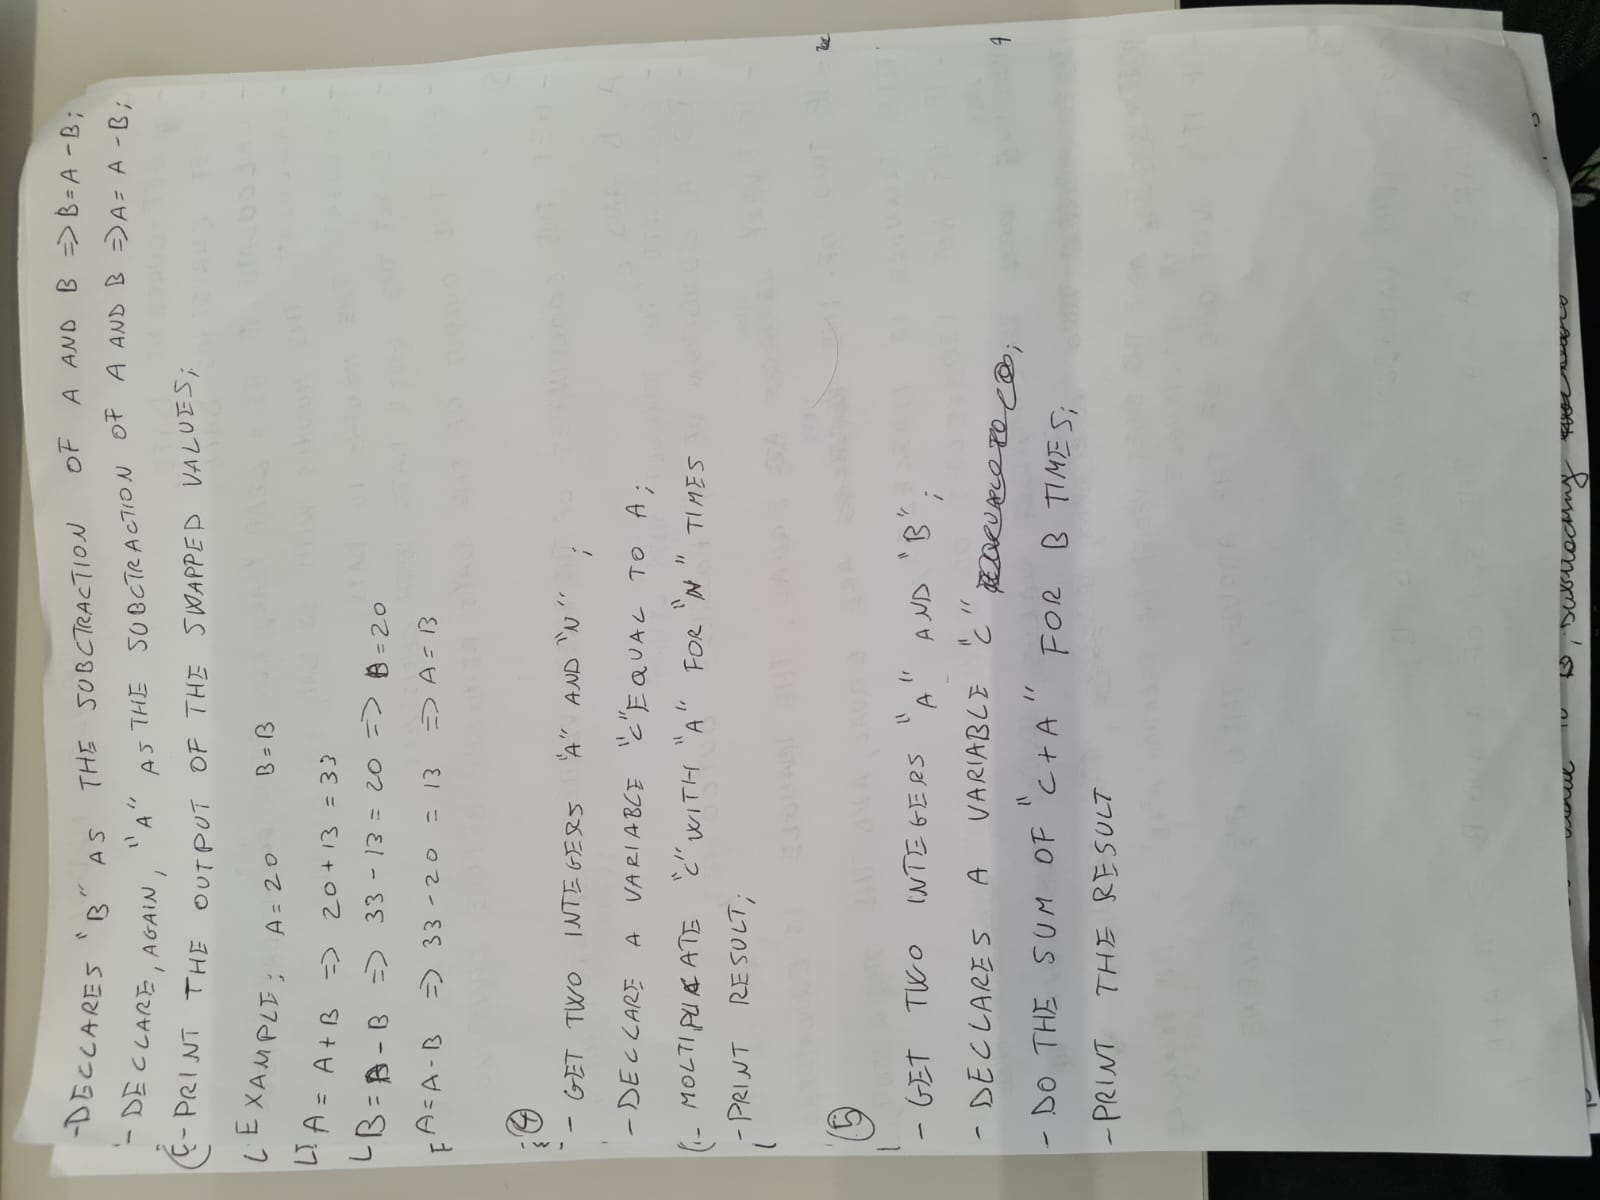 - DECLARES "B" AS THE SUBCTRACTION OF A AND B => B = A - B;
- DECLARE, AGAIN, "A" AS THE SUBCTRACTION OF A AND B => A = A - B;
- PRINT THE OUTPUT OF THE SWAPPED VALUES;
EXAMPLE; A = 20 B = B
A = A + B => 20 + 13 = 33
B = A - B => 33 - 13 = 20 => B = 20
A = A - B => 33 - 20 = 13 => A = 13
4
- GET TWO INTEGERS "A" AND "N";
- DECLARE A VARIABLE "C" EQUAL TO A;
- MOLTIPLICATE "C" WITH "A" FOR "N" TIMES
- PRINT RESULT;
5
- GET TWO INTEGERS "A" AND "B";
- DECLARES A VARIABLE "C" ;
- DO THE SUM OF "C + A" FOR B TIMES;
- PRINT THE RESULT